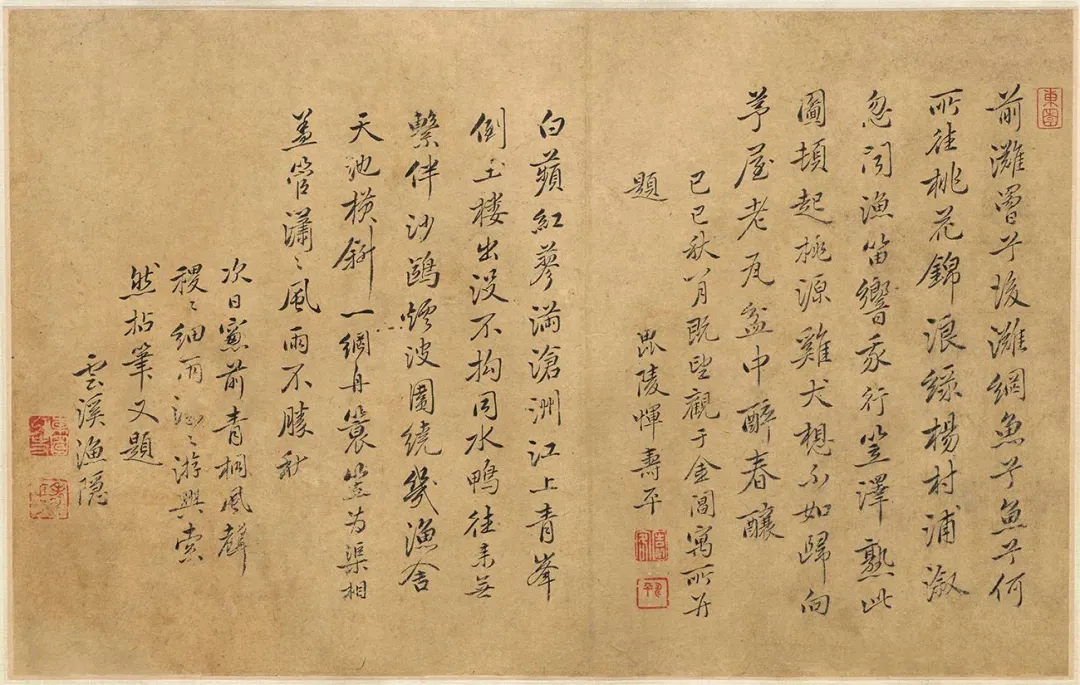 東園
前灘罾兮後灘網魚兮魚兮何
所往桃花錦浪綠楊村浦溆
忽聞漁笛響我行笠澤熟此
圖頓起桃源雞犬想不如歸向
茅屋老瓦盆中醉春釀
己巳秋八月既望觀于金閶寓所并
題
毘陵惲壽平
白蘋紅蓼滿滄洲江上青峯
倒玉樓出没不拘同水鴨往来無
繫伴沙鷗煙波圍繞幾漁舍
天池橫斜一網舟簑笠為渠相
蓋管瀟〻風雨不勝秋
次日窻前青桐風聲
稷〻細雨游興索
然拈筆又題
雲溪漁隱